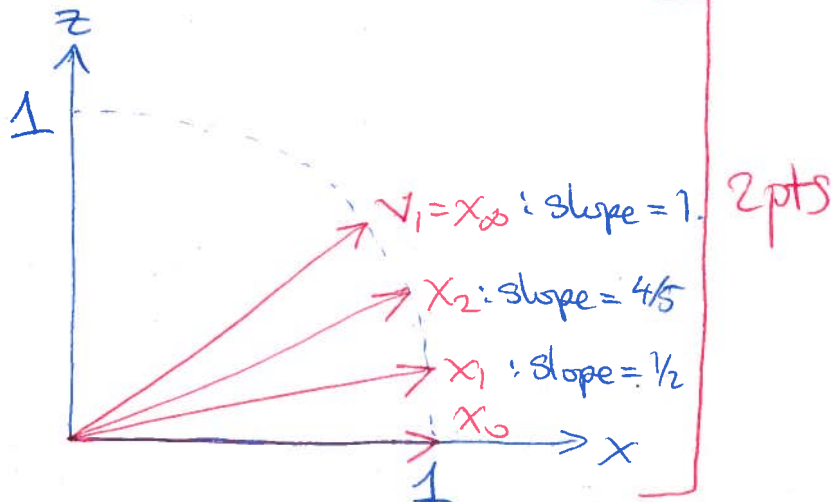 z
1
V₁ = x∞ : slope = 1.
2pts
x₂ : slope = 4/5
x₁ : slope = 1/2
x₀
x
1